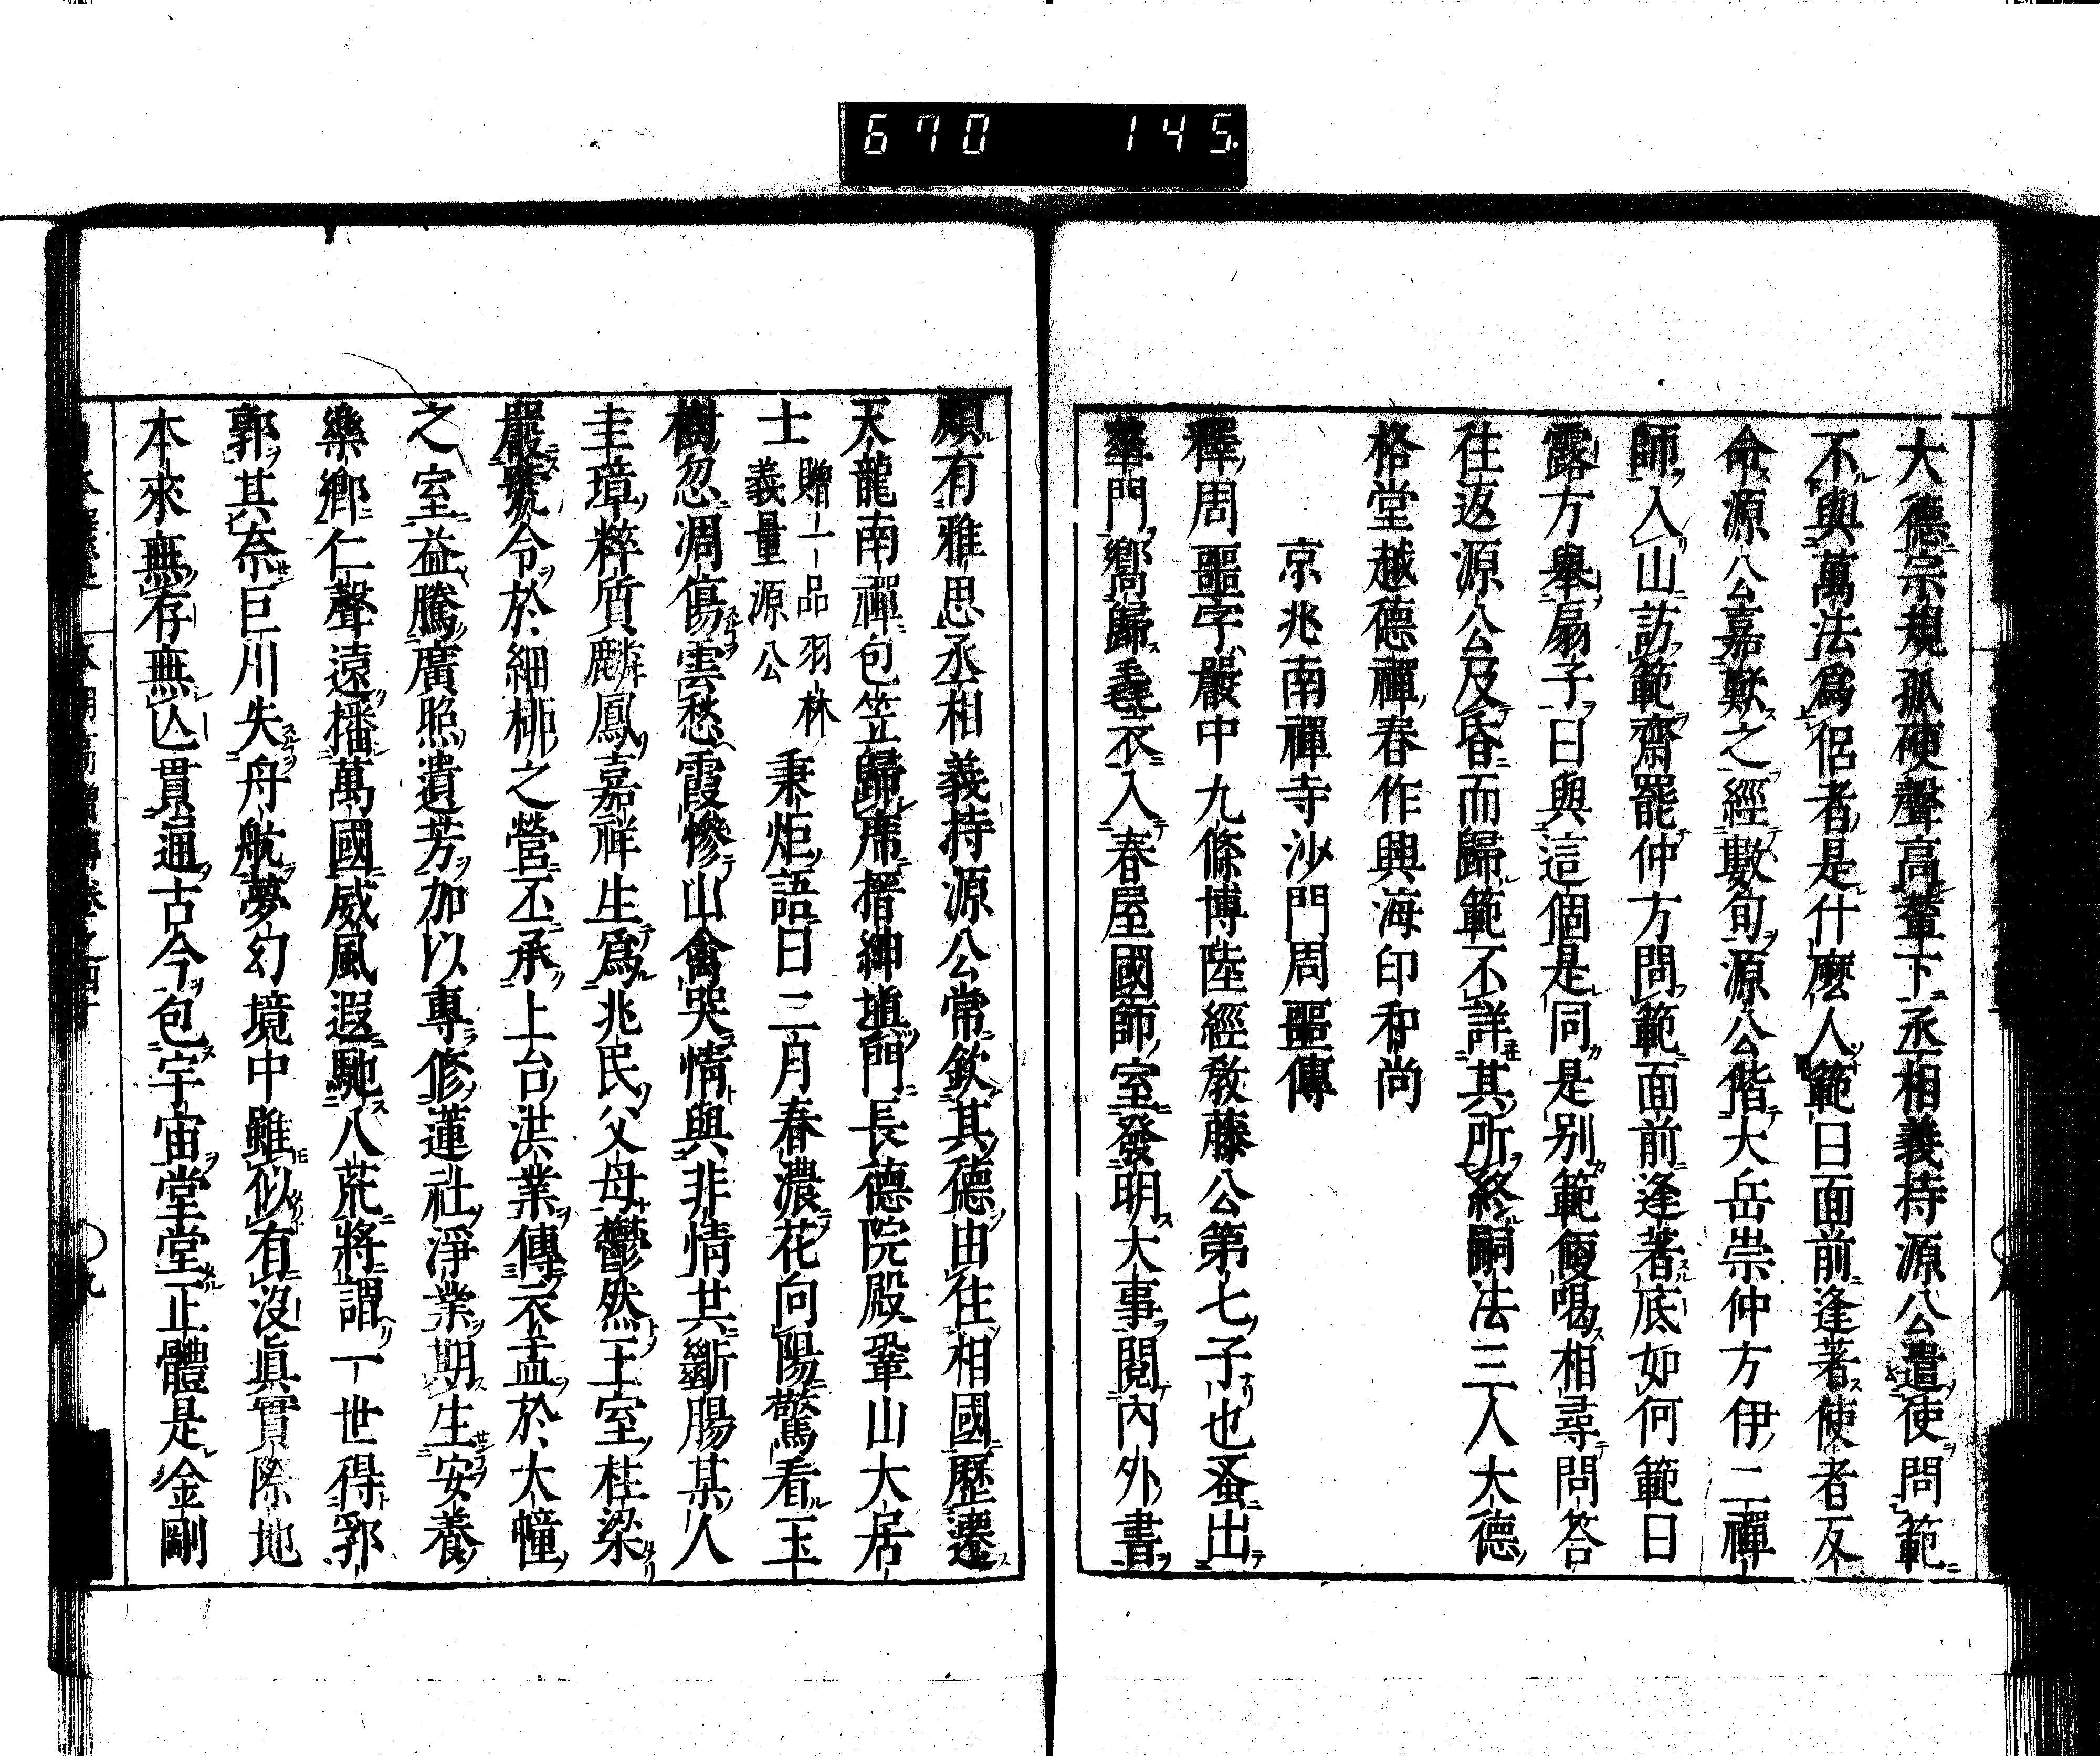 670 145.
大德宗規孤硬聲高輦下丞相義持源公遣使問範
不與萬法爲侶者是什麽人範曰面前逢著使者反
命源公嘉歎之經數旬源公偕大岳崇仲方伊二禪
師入山訪範齋罷仲方問範面前逢著底如何範曰
露方擧扇子曰與這個是同是别範便喝相尋問答
往返源公及昏而歸範不詳其所終嗣法三人大德
格堂越德禪春作興海印和尚
京兆南禪寺沙門周噩傳
釋周噩字嚴中九條博陸經敎藤公第七子也蚤出
華門嚮歸毳衣入春屋國師室發明大事閱內外書
頗有雅思丞相義持源公常欽其德由住相國歷遷
天龍南禪包笠歸席搢紳塡門長德院殿鞏山大居
士
贈一品羽林
義量源公
秉炬語曰二月春濃花向陽驚看玉
樹忽凋傷雲愁霞慘山禽哭情與非情共斷膓某人
圭璋粹質麟鳳嘉祥生爲兆民父母鬱然王室桂梁
嚴號令於細柳之營丕承上台洪業傳衣盂於大幢
之室益騰廣照遺芳加以專修蓮社淨業期生安養
樂鄉仁聲遠播萬國威風遐馳八荒將謂一世得郭
郭其奈巨川失舟航夢幻境中雖似有沒眞實際地
本來無存無亾貫通古今包宇宙堂堂正體是金剛
九